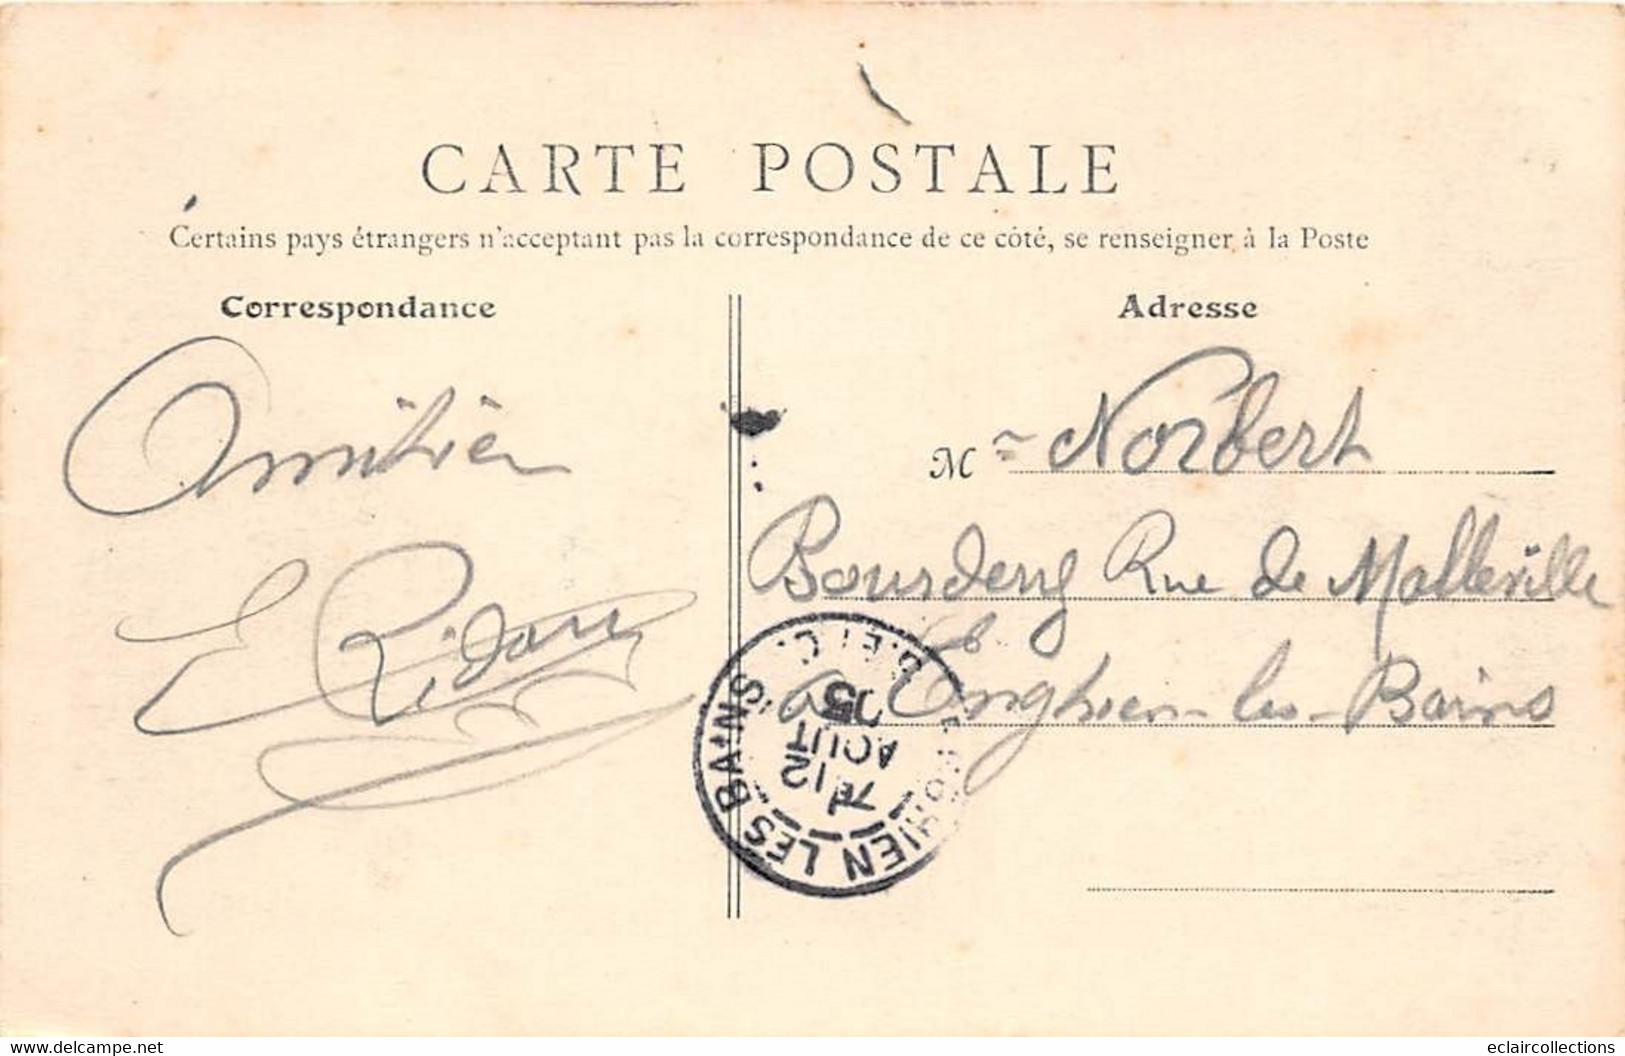 CARTE POSTALE
Certains pays étrangers n'acceptant pas la correspondance de ce côté, se renseigner à la Poste
Correspondance
Adresse
Amitiés
E Ridou
M Norbert
Rue de Malleville
à Enghien-les-Bains
HIEN LES BAINS
S. ET O.
7E 12
AOUT
05
www.delcampe.net
eclaircollections